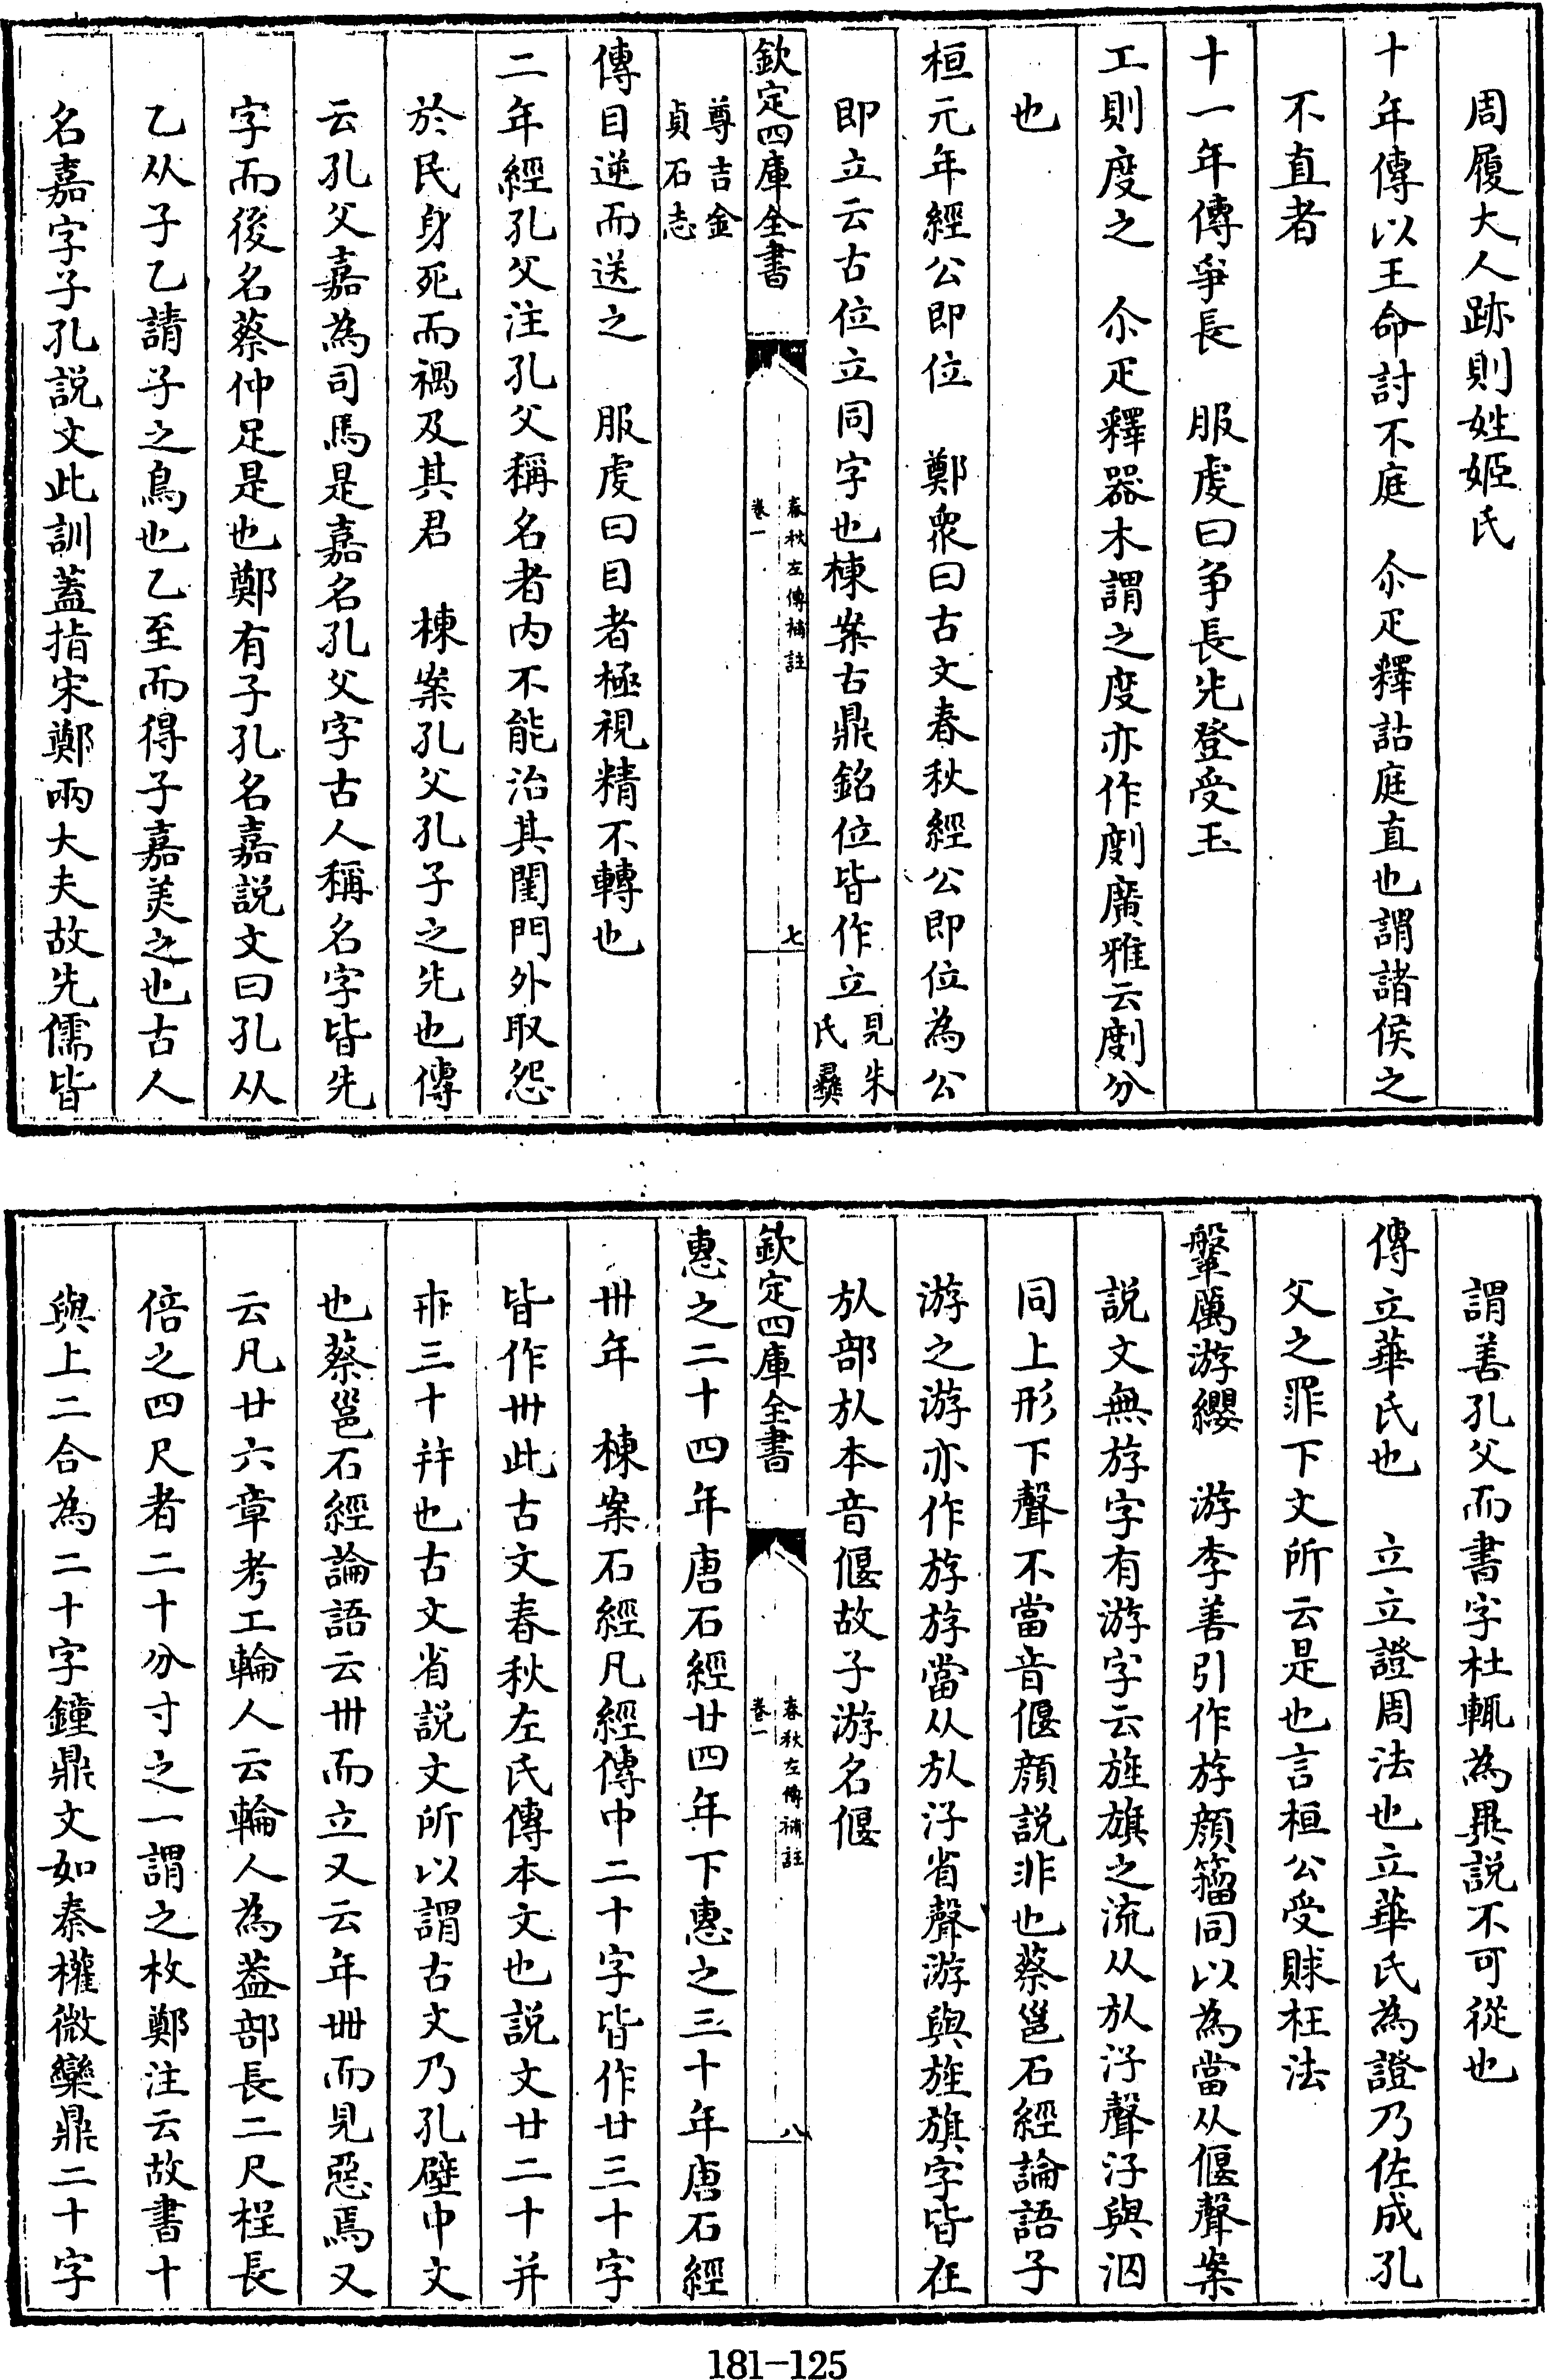 周履大人跡則姓姬氏
十年傳以王命討不庭　尒疋釋詁庭直也謂諸侯之
不直者
十一年傳爭長　服虔曰争長先登受玉
工則度之　尒疋釋器木謂之度亦作剫廣雅云剫分
也
桓元年經公即位　鄭衆曰古文春秋經公即位為公
即立云古位立同字也棟案古鼎銘位皆作立見朱氏彝
欽定四庫全書
春秋左傳補註
卷一
七
尊吉金貞石志
傳目逆而送之　服虔曰目者極視精不轉也
二年經孔父注孔父稱名者内不能治其閨門外取怨
於民身死而禍及其君　棟案孔父孔子之先也傳
云孔父嘉為司馬是嘉名孔父字古人稱名字皆先
字而後名蔡仲足是也鄭有子孔名嘉説文曰孔从
乙从子乙請子之鳥也乙至而得子嘉美之也古人
名嘉字子孔説文此訓蓋指宋鄭兩大夫故先儒皆
謂善孔父而書字杜輒為異説不可從也
傳立華氏也　立立證周法也立華氏為證乃佐成孔
父之罪下文所云是也言桓公受賕枉法
鞶厲游纓　游李善引作斿顔籀同以為當从偃聲案
説文無斿字有游字云旌旗之流从㫃汓聲汓與泅
同上形下聲不當音偃顔説非也蔡邕石經論語子
游之游亦作斿斿當从㫃汓省聲游與旌旗字皆在
㫃部㫃本音偃故子游名偃
欽定四庫全書
春秋左傳補註
卷一
八
惠之二十四年唐石經廿四年下惠之三十年唐石經
卅年　棟案石經凡經傳中二十字皆作廿三十字
皆作卅此古文春秋左氏傳本文也説文廿二十并
卅三十并也古文省説文所以謂古文乃孔壁中文
也蔡邕石經論語云卅而立又云年卌而見惡焉又
云凡廿六章考工輪人云輪人為蓋部長二尺桯長
倍之四尺者二十分寸之一謂之枚鄭注云故書十
與上二合為二十字鐘鼎文如秦權微欒鼎二十字
181-125